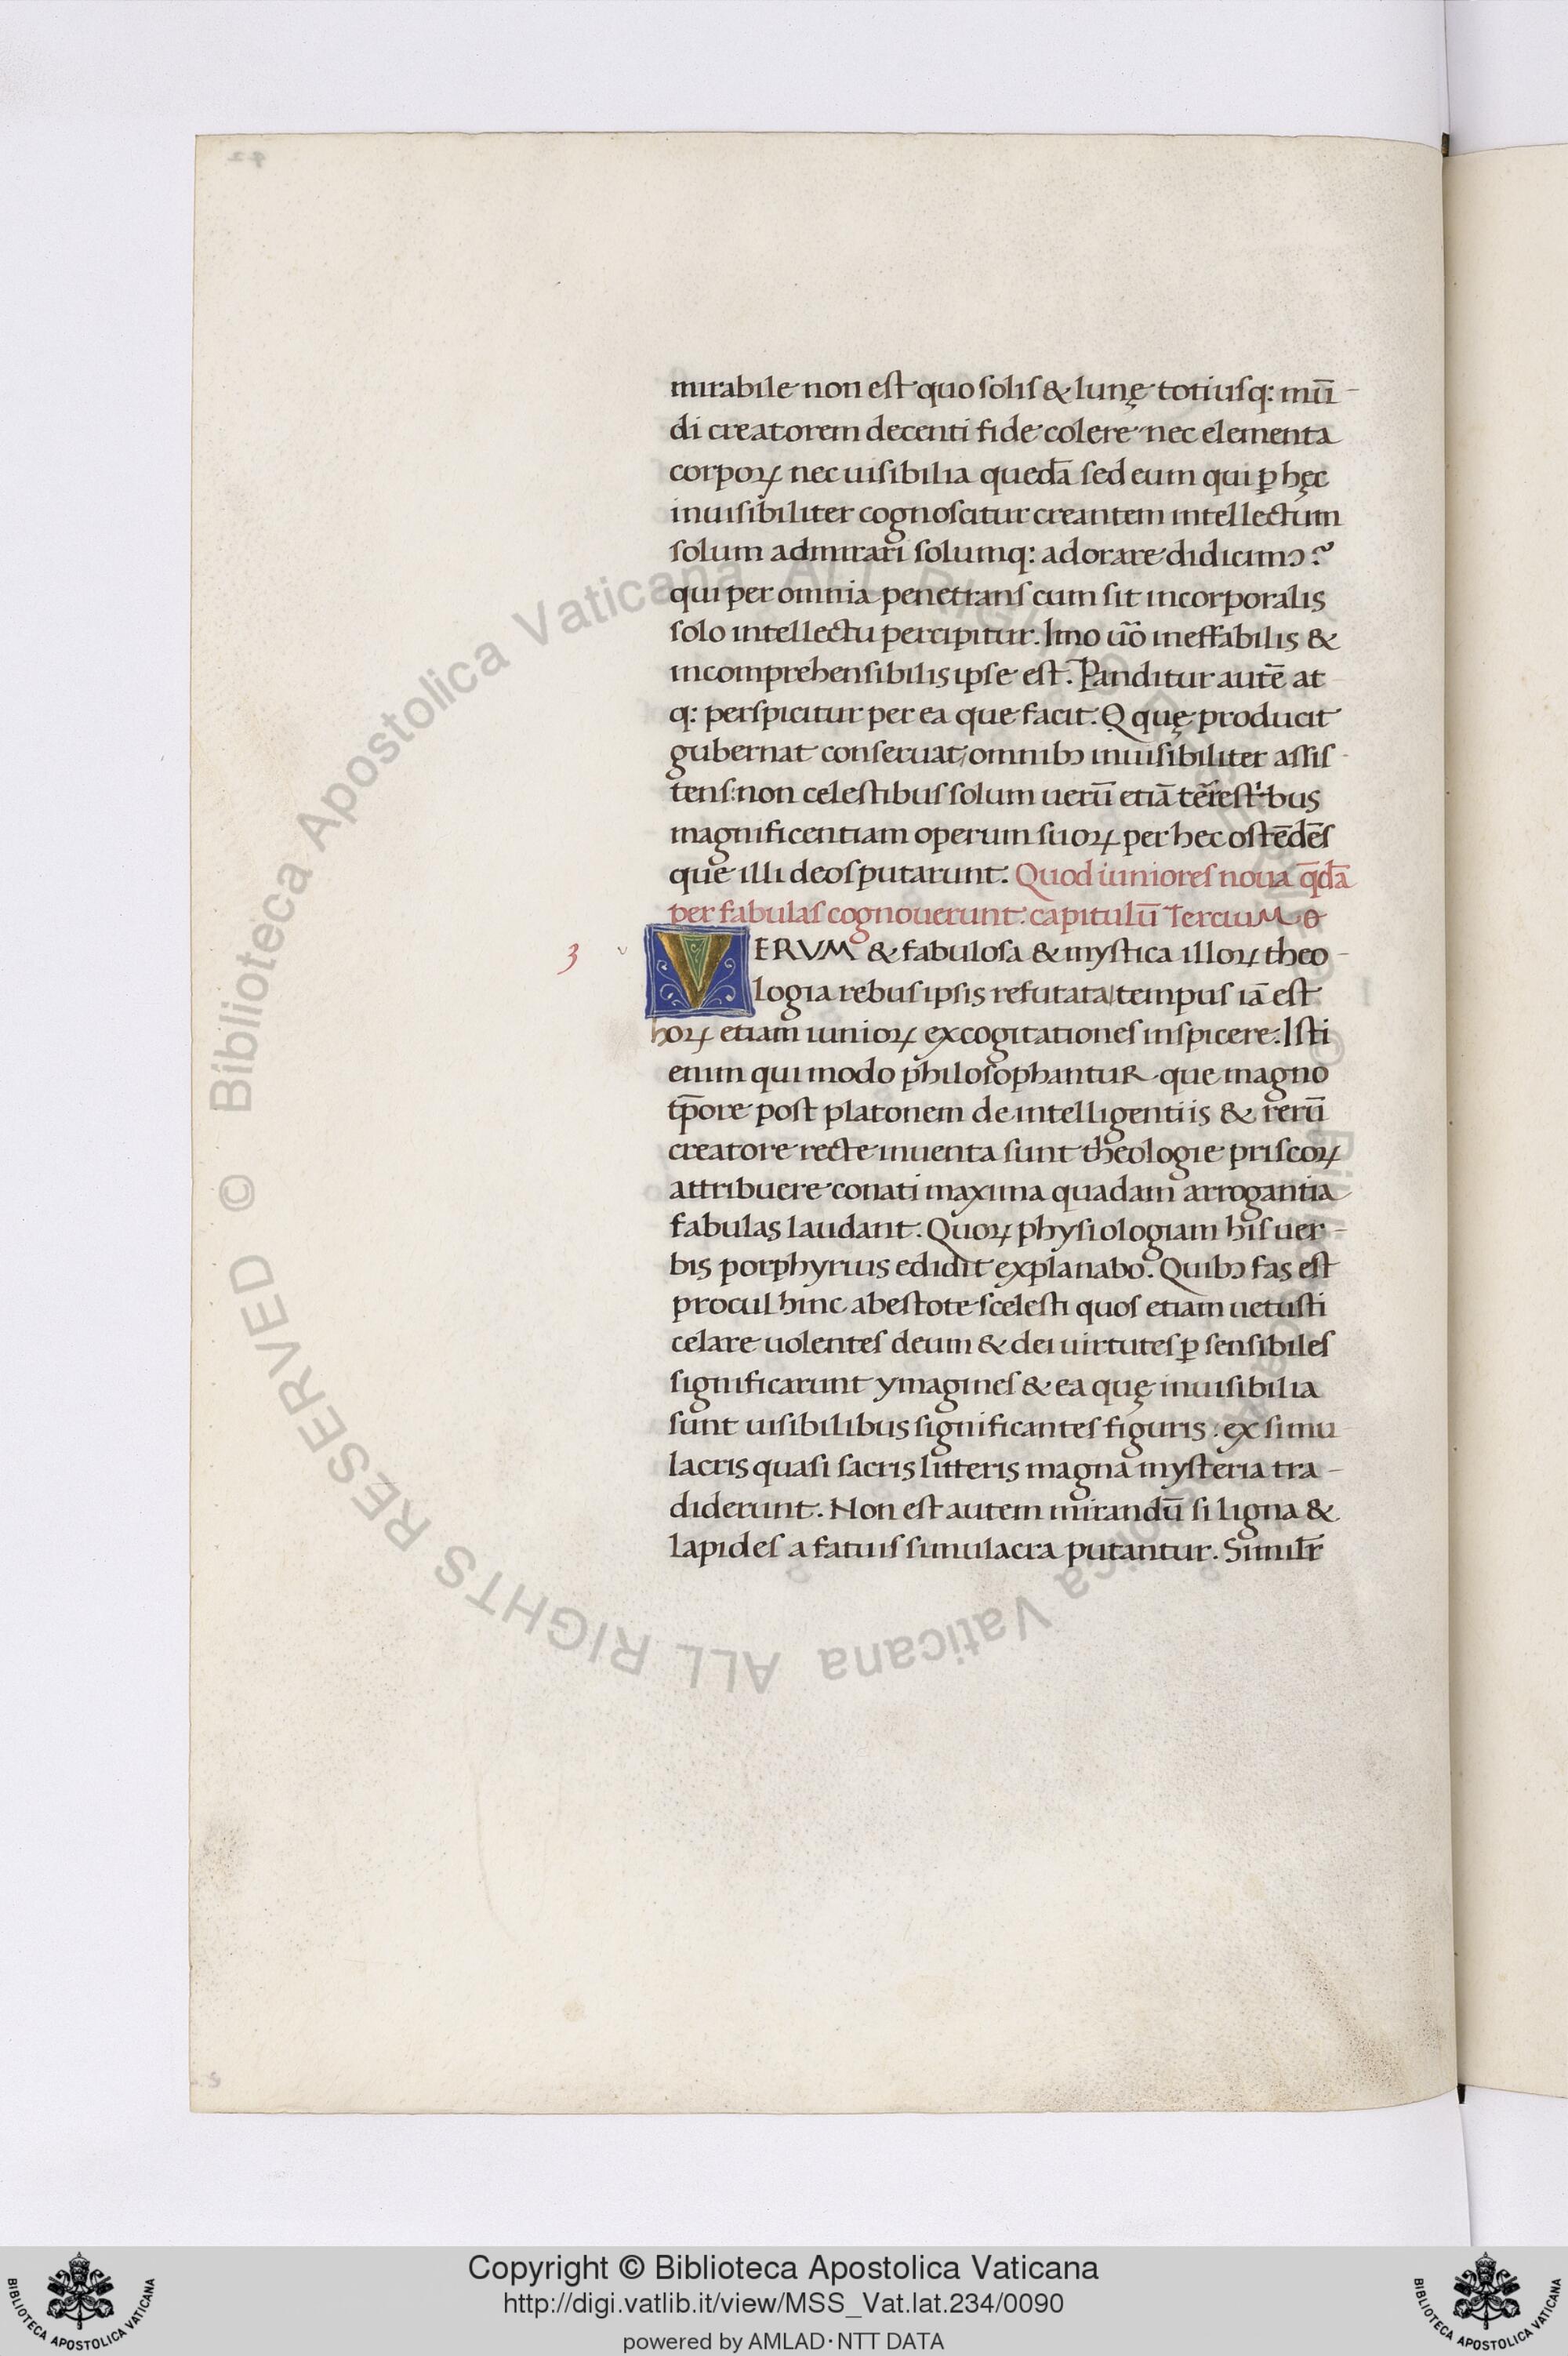 mirabile non est quo solis & lunę totiusq: mū-
di creatorem decenti fide colere nec elementa
corporꝝ nec uisibilia quedā sed eum qui ꝑ hęc
inuisibiliter cognoscitur creantem intellectum
solum admirari solumq: adorare didicimꝰ?
qui per omnia penetrans cum sit incorporalis
solo intellectu percipitur. Imo uō ineffabilis &
incomprehensibilis ipse est. Panditur autē at
q: perspicitur per ea que facit. Q quę producit
gubernat conseruat, omnibꝰ inuisibiliter assis-
tens: non celestibus solum uerū etiā terrestibus
magnificentiam operum suoꝝ per hec ostēdēs
que illi deos putarunt. Quod iuniores noua q̄dā
per fabulas cognouerunt. capitulū Terciuм. o
3
VERVM & fabulosa & mystica illoꝝ theo-
logia rebus ipsis refutata, tempus iā est
hoꝝ etiam iunioꝝ excogitationes inspicere. Isti
enim qui modo philosophantur que magno
tp̄ore post platonem de intelligentiis & rerū
creatore recte inuenta sunt theologie priscoꝝ
attribuere conati maxima quadam arrogantia
fabulas laudant. Quoꝝ physiologiam his uer-
bis porphyrius edidit explanabo. Quibꝰ fas est
procul hinc abestote scelesti quos etiam uetusti
celare uolentes deum & dei uirtutes ꝑ sensibiles
significarunt ymagines & ea quę inuisibilia
sunt uisibilibus significantes figuris: ex simu
lacris quasi sacris litteris magna mysteria tra-
diderunt. Non est autem mirandū si ligna &
lapides a fatuis simulacra putantur. Similr̄
© Biblioteca Apostolica Vaticana ALL RIGHTS RESERVED
Copyright © Biblioteca Apostolica Vaticana
http://digi.vatlib.it/view/MSS_Vat.lat.234/0090
powered by AMLAD·NTT DATA
BIBLIOTECA APOSTOLICA VATICANA
BIBLIOTECA APOSTOLICA VATICANA